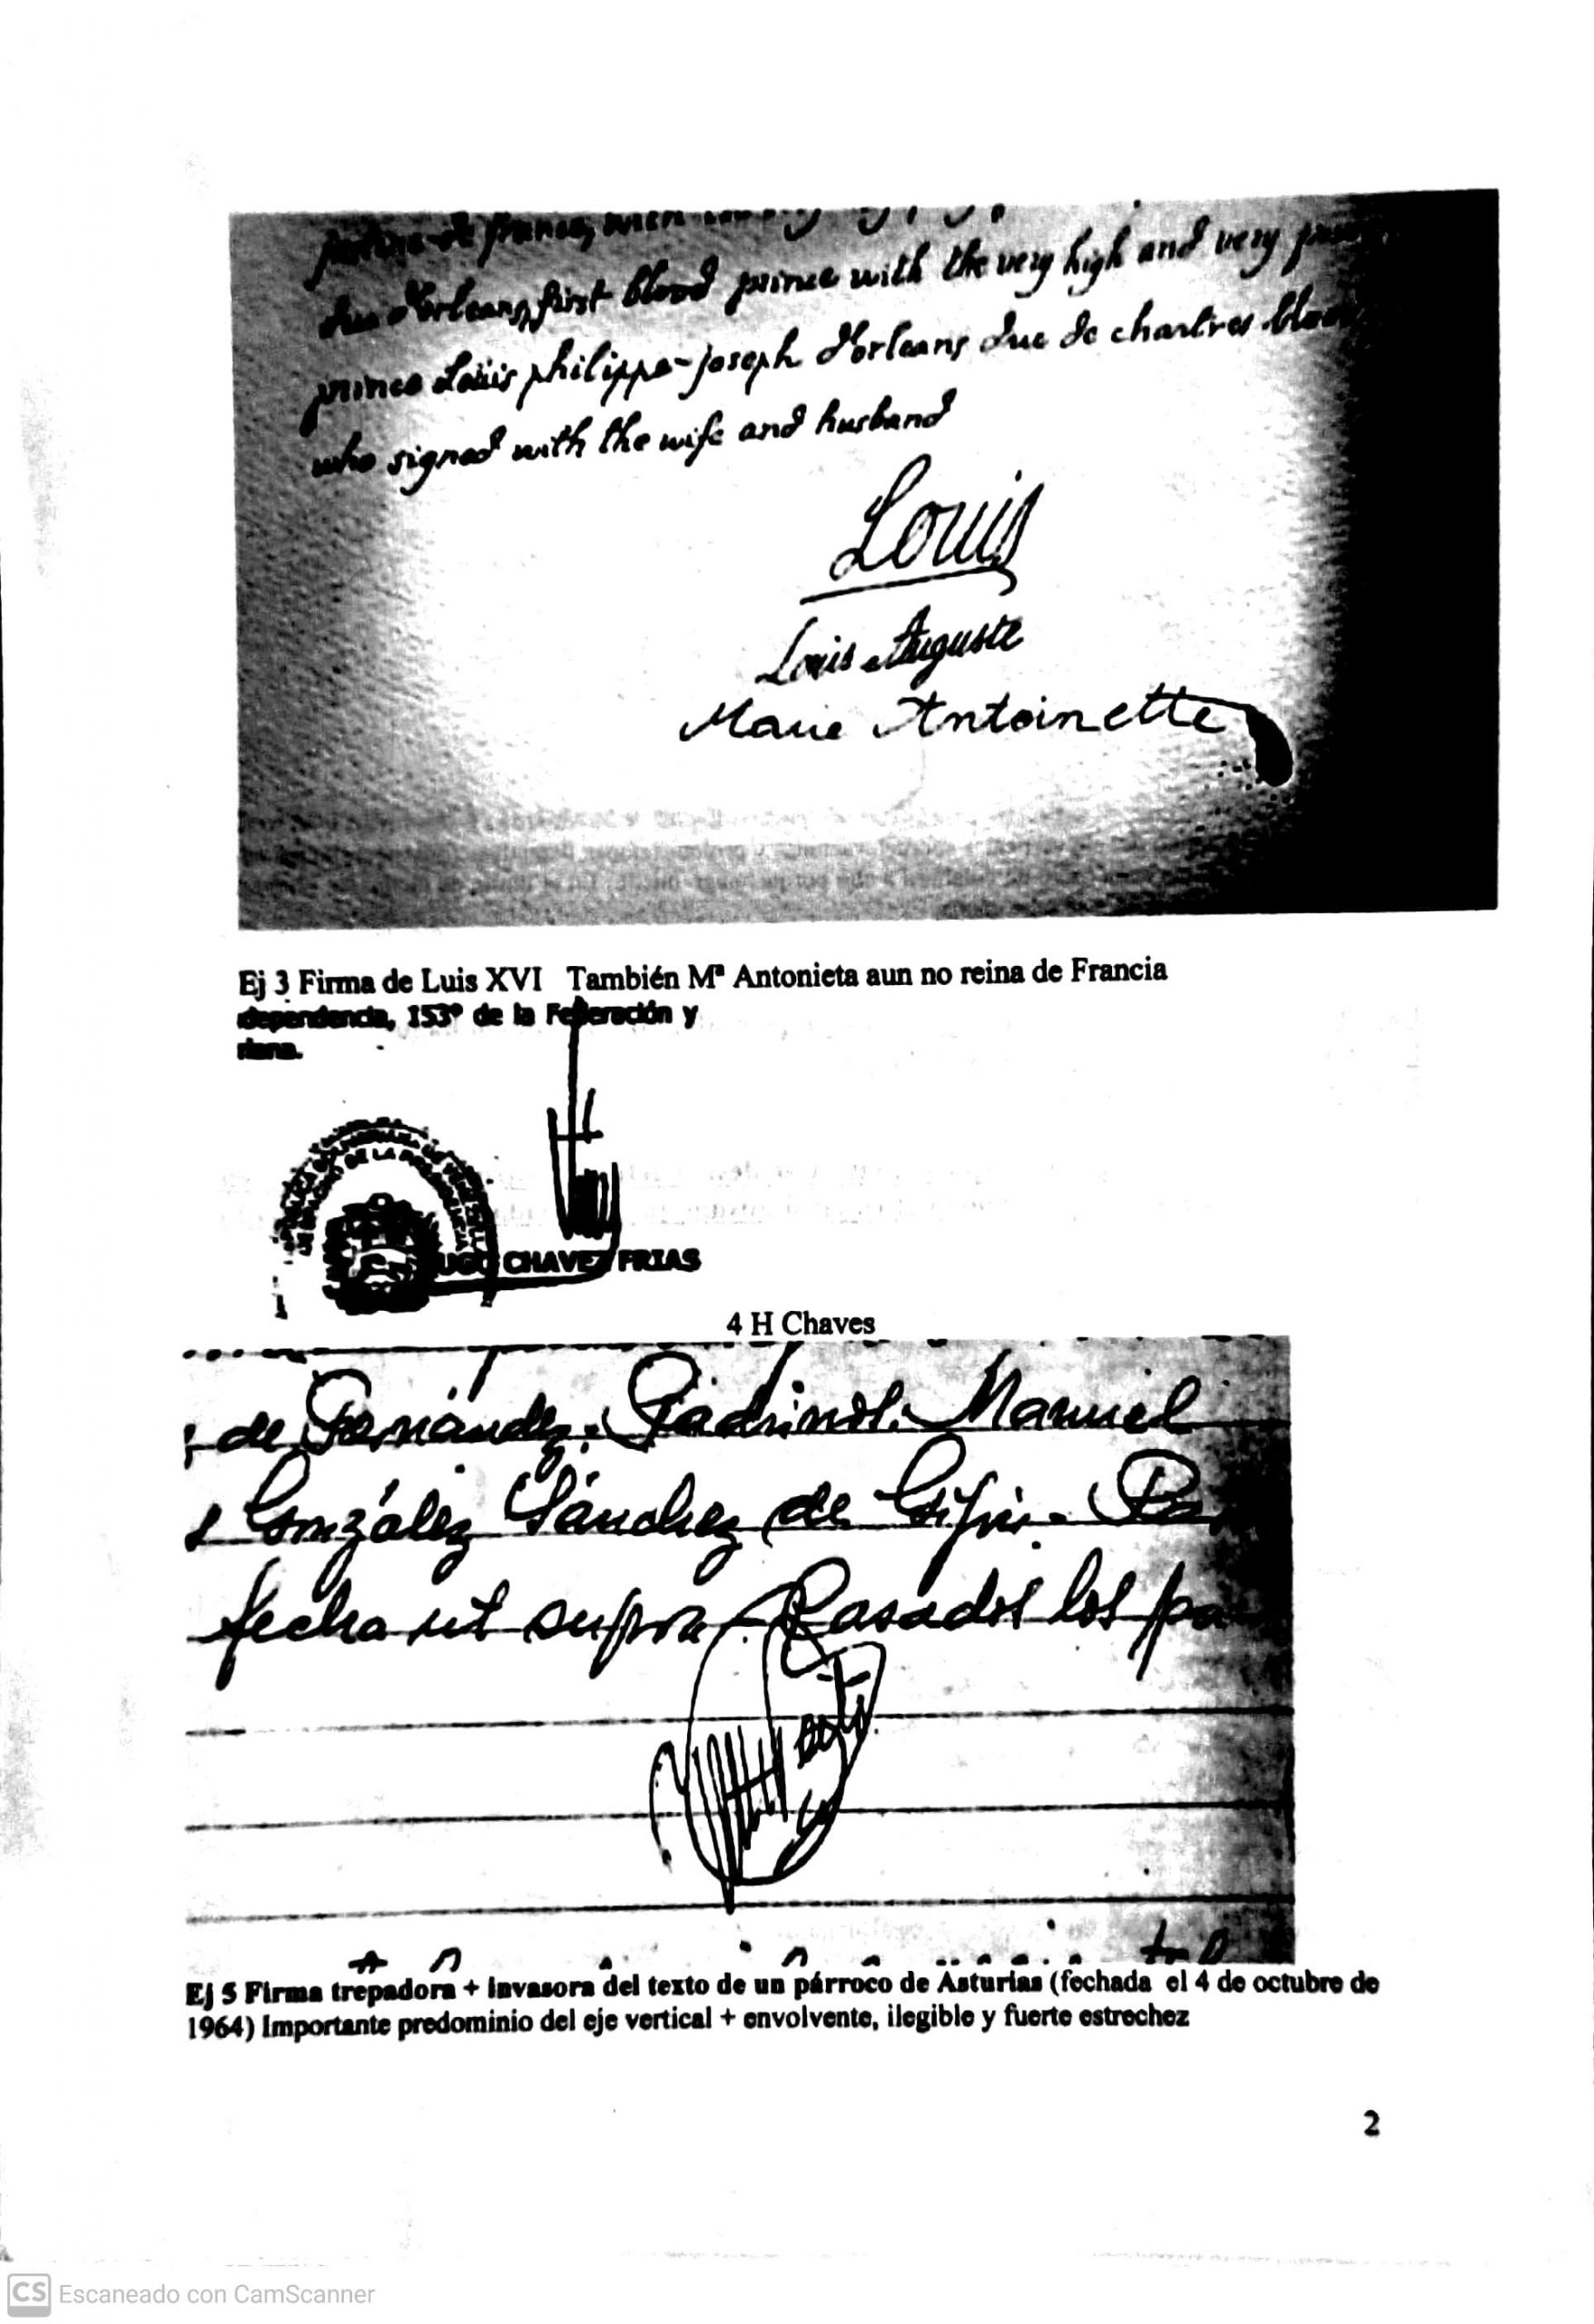 due d'orleans, first blood prince with the very high and very
prince Louis philippe-joseph d'orleans due de chartres bloo
who signed with the wife and husband
Louis
Louis Auguste
Marie Antoinette
Ej 3 Firma de Luis XVI También Mª Antonieta aun no reina de Francia
dependencia, 153º de la Federación y
riana.
DE LA
UGO CHAVEZ FRIAS
4 H Chaves
de Fernández. Padrinos: Manuel
González Sánchez de
fecha ut supra. Pasados los pa
Ej 5 Firma trepadora + invasora del texto de un párroco de Asturias (fechada el 4 de octubre de
1964) Importante predominio del eje vertical + envolvente, ilegible y fuerte estrechez
2
CS Escaneado con CamScanner